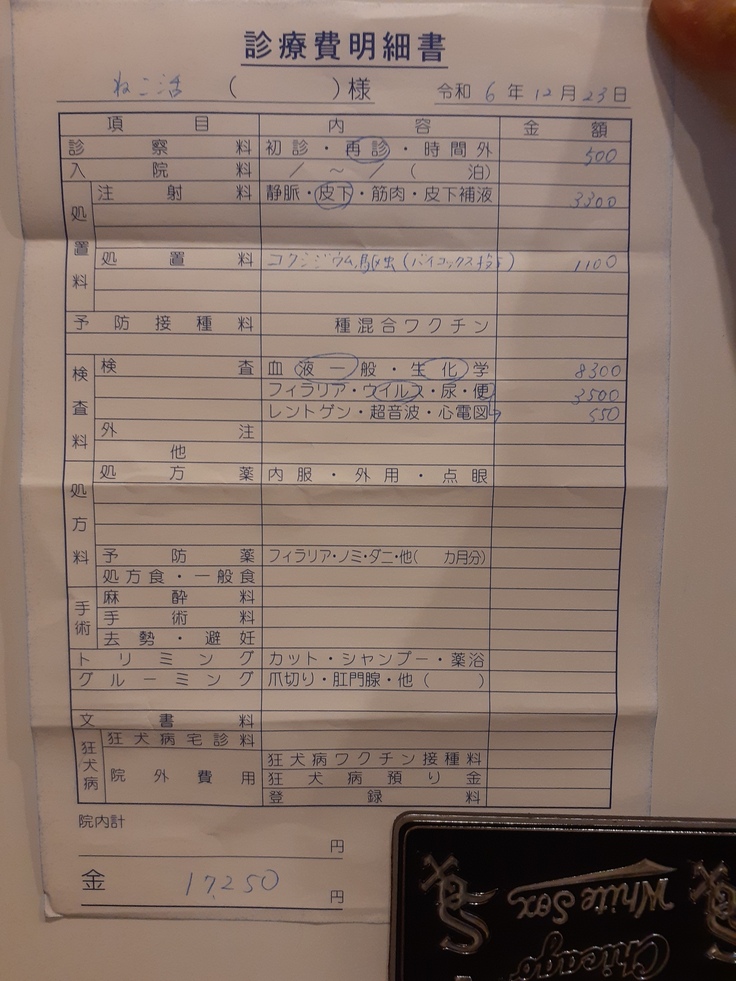 診療費明細書
ねこ活 ( ) 様 令和 6 年 12 月 23 日
項目 内容 金額
診察料 初診・再診・時間外 500
入院料 / ～ / ( 泊)
処置料
注射料 静脈・皮下・筋肉・皮下補液 3300
処置料 コクシジウム駆虫 (バイコックス投与) 1100
予防接種料 種混合ワクチン
検査料
検査 血液一般・生化学 8300
フィラリア・ウイルス・尿・便 3500
レントゲン・超音波・心電図 550
外注
他
処方料
処方薬 内服・外用・点眼
予防薬 フィラリア・ノミ・ダニ・他( カ月分)
処方食・一般食
手術
麻酔料
手術料
去勢・避妊
トリミング カット・シャンプー・薬浴
グルーミング 爪切り・肛門腺・他( )
文書料
狂犬病
狂犬病宅診料
院外費用 狂犬病ワクチン接種料
狂犬病預り金
登録料
院内計
円
金 17,250 円
Chicago
White Sox
Sox